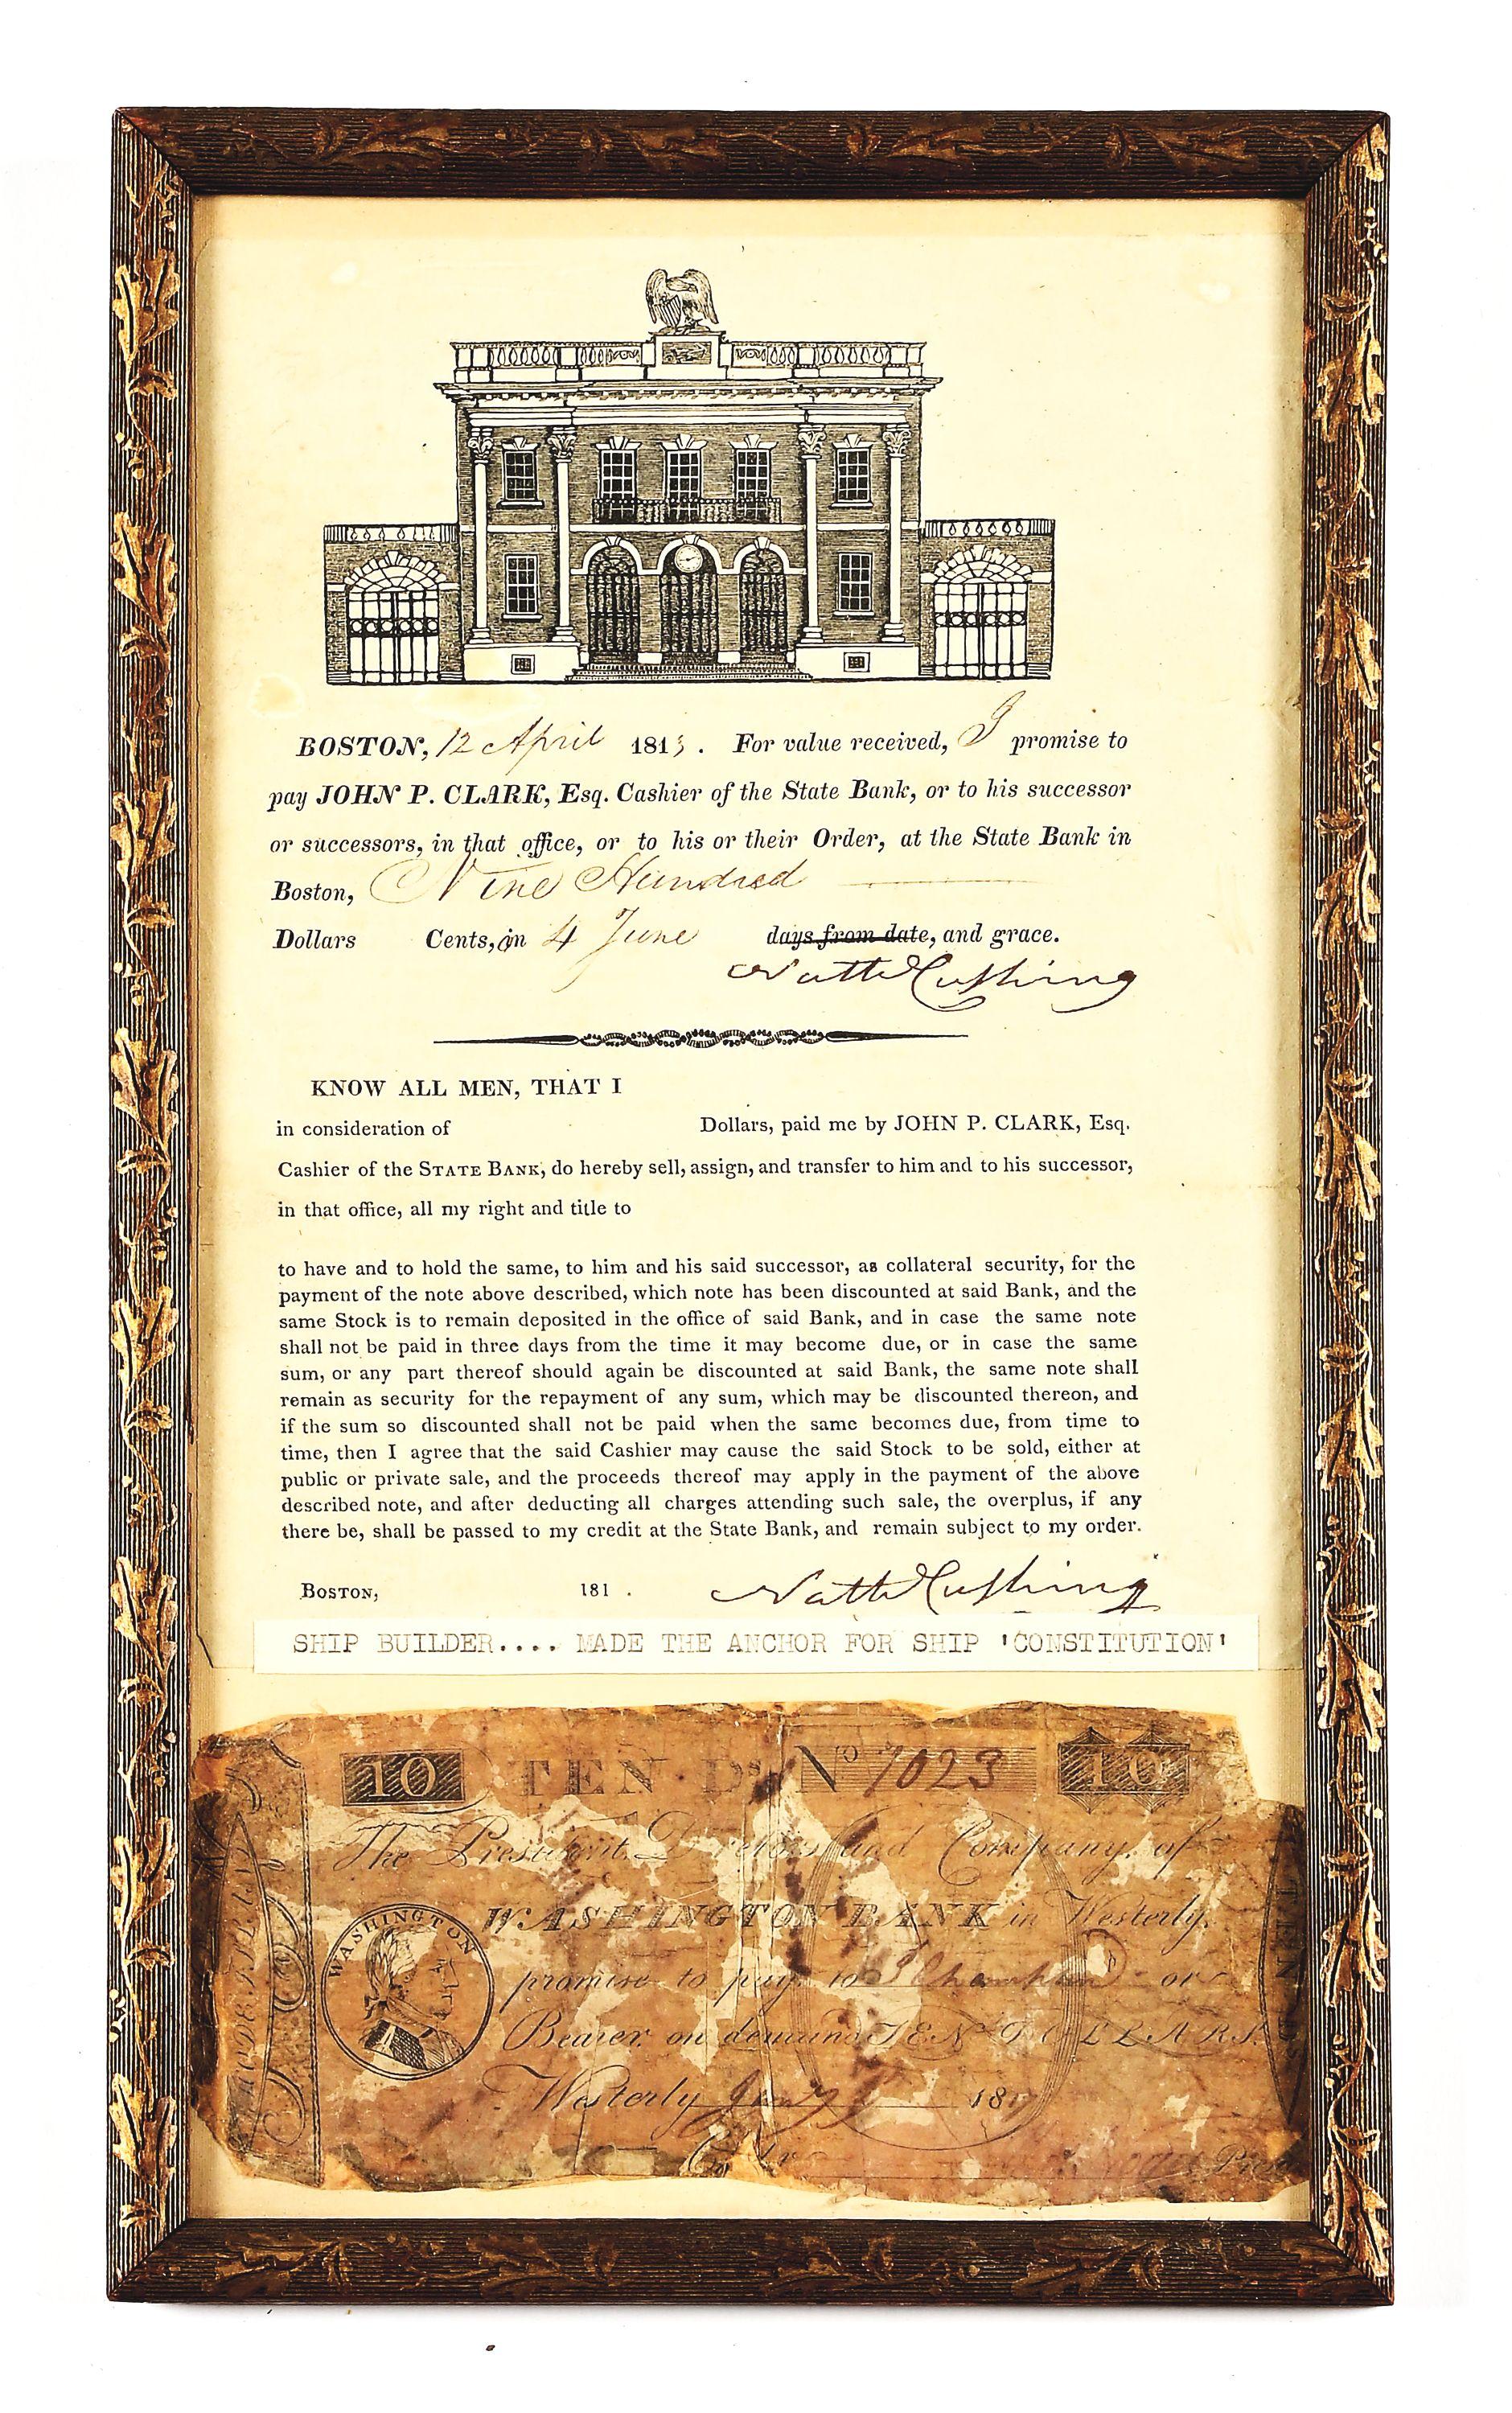 BOSTON, 12 April 1813. For value received, I promise to
pay JOHN P. CLARK, Esq. Cashier of the State Bank, or to his successor
or successors, in that office, or to his or their Order, at the State Bank in
Boston, Nine Hundred
Dollars Cents, in 4 June days from date, and grace.
Nath Cushing
KNOW ALL MEN, THAT I
in consideration of Dollars, paid me by JOHN P. CLARK, Esq.
Cashier of the STATE BANK, do hereby sell, assign, and transfer to him and to his successor,
in that office, all my right and title to
to have and to hold the same, to him and his said successor, as collateral security, for the
payment of the note above described, which note has been discounted at said Bank, and the
same Stock is to remain deposited in the office of said Bank, and in case the same note
shall not be paid in three days from the time it may become due, or in case the same
sum, or any part thereof should again be discounted at said Bank, the same note shall
remain as security for the repayment of any sum, which may be discounted thereon, and
if the sum so discounted shall not be paid when the same becomes due, from time to
time, then I agree that the said Cashier may cause the said Stock to be sold, either at
public or private sale, and the proceeds thereof may apply in the payment of the above
described note, and after deducting all charges attending such sale, the overplus, if any
there be, shall be passed to my credit at the State Bank, and remain subject to my order.
BOSTON, 181 .
Nath Cushing
SHIP BUILDER.... MADE THE ANCHOR FOR SHIP 'CONSTITUTION'
10 TEN D No 7023 10
The President Directors and Company of
WASHINGTON BANK in Westerly
WASHINGTON
promise to pay to or
Bearer on demand TEN DOLLARS
Westerly 18
TEN